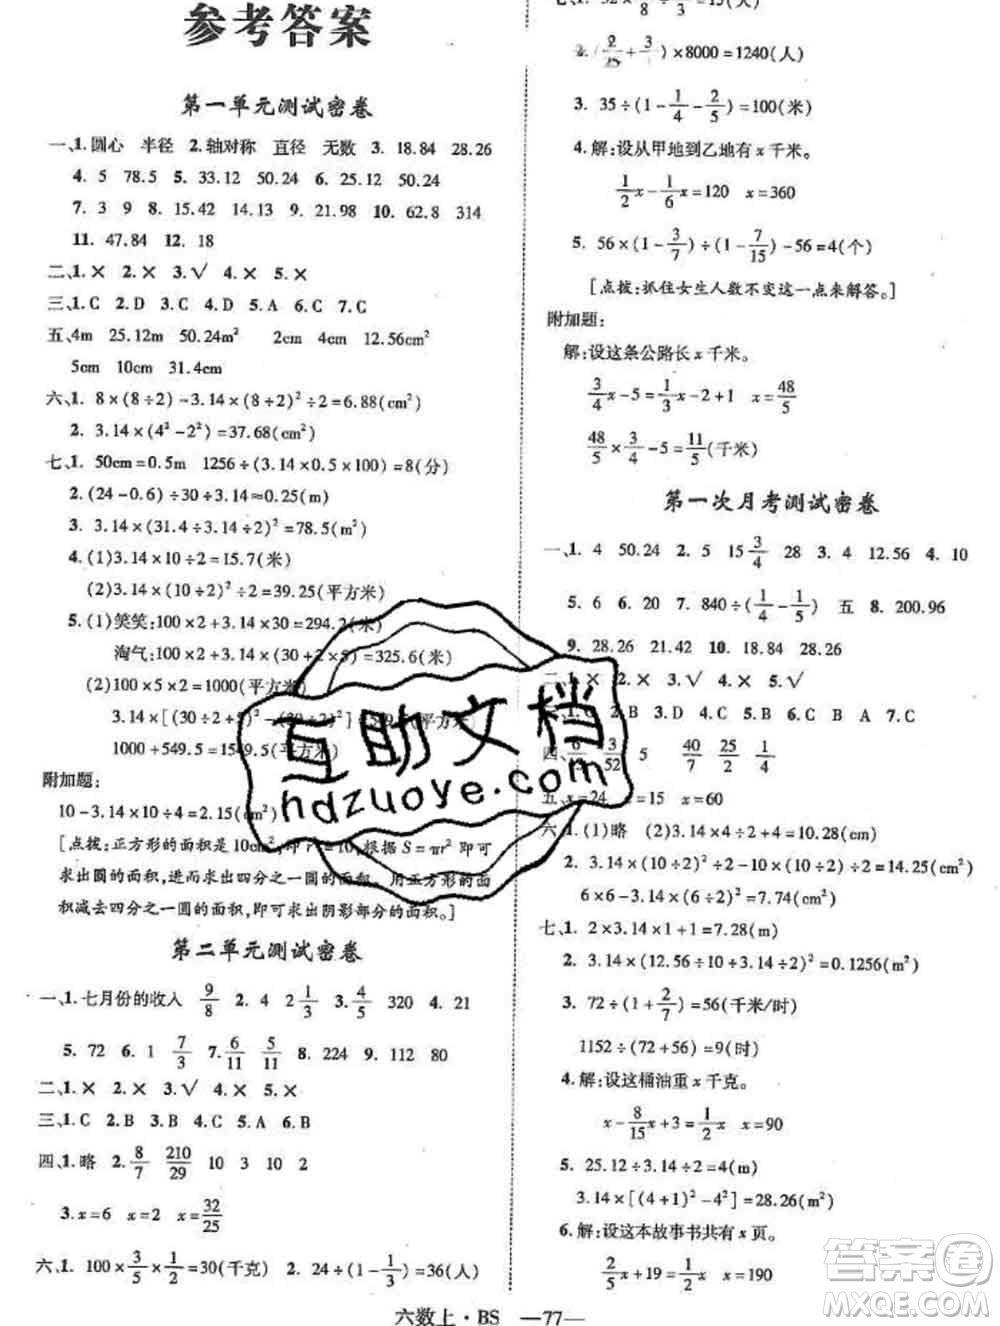 参考答案
第一单元测试密卷
一、1.圆心 半径 2.轴对称 直径 无数 3. 18.84 28.26
4. 5 78.5 5. 33.12 50.24 6. 50.24 50.24
7. 3 9 8. 15.42 14.13 9. 21.98 10. 62.8 314
11. 47.84 12. 18
二、1.× 2.× 3.√ 4.× 5.×
三、1.C 2.D 3.C 4.D 5.A 6.C 7.C
五、4m 25.12m 50.24m² 2cm 4cm 12.56cm
5cm 10cm 31.4cm
六、1. 8×(8÷2)-3.14×(8÷2)²÷2=6.88(cm²)
2. 3.14×(4²-2²)=37.68(cm²)
七、1. 50cm=0.5m 1256÷(3.14×0.5×100)=8(分)
2. (24-0.6)÷30÷3.14≈0.25(m)
3. 3.14×(31.4÷3.14÷2)²=78.5(m²)
4. (1)3.14×10÷2=15.7(米)
(2)3.14×(10÷2)²÷2=39.25(平方米)
5. (1)笑笑:100×2+3.14×30=294.2(米)
淘气:100×2+3.14×(30+2×5)=325.6(米)
(2)100×5×2=1000(平方米)
3.14×[(30÷2+5)²-(30÷2)²]=549.5(平方米)
1000+549.5=1549.5(平方米)
附加题:
10-3.14×10÷4=2.15(cm²)
[点拨:正方形的面积是10cm²,即r²=10,根据S=πr²即可
求出圆的面积,进而求出四分之一圆的面积,用正方形的面
积减去四分之一圆的面积,即可求出阴影部分的面积。]
第二单元测试密卷
一、1.七月份的收入 9/8 2. 4 2 1/3 3. 4/5 320 4. 21
5. 72 6. 1 7/3 7. 6/11 5/11 8. 224 9. 112 80
二、1.× 2.× 3.√ 4.× 5.×
三、1.C 2.B 3.B 4.C 5.A 6.B
四、1.略 2. 8/7 210/29 10 3 10 2
3. x=6 x=2 x=32/25
六、1. 100×3/5×1/2=30(千克) 2. 24÷(1-1/3)=36(人)
七、1. 32÷ /8÷ /3=15(米)
2. (2/25+3/ )×8000=1240(人)
3. 35÷(1-1/4-2/5)=100(米)
4.解:设从甲地到乙地有x千米。
1/2x-1/6x=120 x=360
5. 56×(1-3/7)÷(1-7/15)-56=4(个)
[点拨:抓住女生人数不变这一点来解答。]
附加题:
解:设这条公路长x千米。
3/4x-5=1/3x-2+1 x=48/5
48/5×3/4-5=11/5(千米)
第一次月考测试密卷
一、1. 4 50.24 2. 5 15 3/4 28 3. 4 12.56 4. 10
5. 6 6. 20 7. 840÷(1/4-1/5) 五 8. 200.96
9. 28.26 21.42 10. 18.84 28.26
二、1.× 2.× 3.√ 4.× 5.√
6.C B A 7.C
四、 3/52 5 40/7 25/2 1/4
五、x=24 x=15 x=60
六、1. (1)略 (2)3.14×4÷2+4=10.28(cm)
2. 3.14×(10÷2)²÷2-10×(10÷2)÷2=14.25(cm²)
6×6-3.14×(6÷2)²=7.74(cm²)
七、1. 2×3.14×1+1=7.28(m)
2. 3.14×(12.56÷10÷3.14÷2)²=0.1256(m²)
3. 72÷(1+2/7)=56(千米/时)
1152÷(72+56)=9(时)
4.解:设这桶油重x千克。
x-8/15x+3=1/2x x=90
5. 25.12÷3.14÷2=4(m)
3.14×[(4+1)²-4²]=28.26(m²)
6.解:设这本故事书共有x页。
2/5x+19=1/2x x=190
六数上·BS —77—
互助文档
hdzuoye.com
答案圈
MXQE.COM